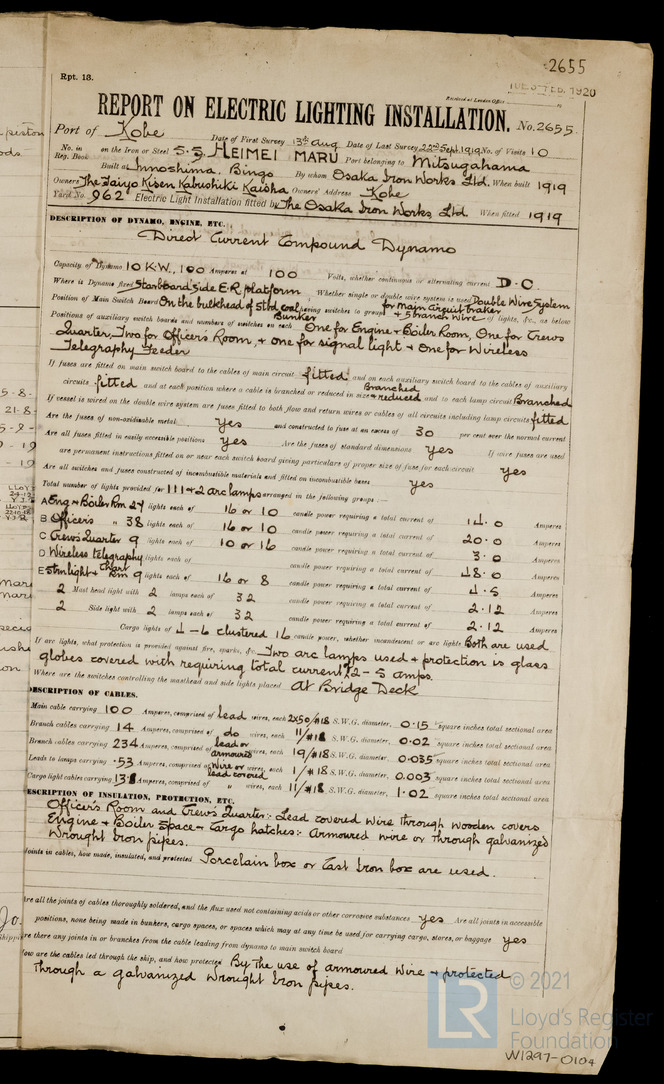 2655
Rpt. 13.
TUE. 3 FEB. 1920
Received at London Office
REPORT ON ELECTRIC LIGHTING INSTALLATION. No. 2655
Port of Kobe Date of First Survey 13th Aug Date of Last Survey 22nd Sept 1919 No. of Visits 10
No. in Reg. Book on the Iron or Steel S.S. HEIMEI MARU Port belonging to Mitsugahama
Built at Innoshima, Bingo By whom Osaka Iron Works Ltd. When built 1919
Owners The Taiyo Kisen Kabushiki Kaisha Owners' Address Kobe
Yard No. 962 Electric Light Installation fitted by The Osaka Iron Works Ltd When fitted 1919
DESCRIPTION OF DYNAMO, ENGINE, ETC.
Direct Current Compound Dynamo
Capacity of Dynamo 10 K.W., 100 Amperes at 100 Volts, whether continuous or alternating current D.C.
Where is Dynamo fixed Starboard side E.R. platform Whether single or double wire system is used Double Wire System
Position of Main Switch Board On the bulkhead of stbd coal Bunker having switches to groups for main circuit braker + 5 branch wire of lights, &c., as below
Positions of auxiliary switch boards and numbers of switches on each One for Engine & Boiler Room, One for Crews
Quarter, Two for Officers Room, & one for signal light & One for Wireless
Telegraphy Feeder
If fuses are fitted on main switch board to the cables of main circuit fitted and on each auxiliary switch board to the cables of auxiliary
circuits fitted and at each position where a cable is branched or reduced in size Branched & reduced and to each lamp circuit Branched
If vessel is wired on the double wire system are fuses fitted to both flow and return wires or cables of all circuits including lamp circuits fitted
Are the fuses of non-oxidizable metal yes and constructed to fuse at an excess of 30 per cent over the normal current
Are all fuses fitted in easily accessible positions yes Are the fuses of standard dimensions yes If wire fuses are used
are permanent instructions fitted on or near each switch board giving particulars of proper size of fuse for each circuit yes
Are all switches and fuses constructed of incombustible materials and fitted on incombustible bases yes
Total number of lights provided for 111 + 2 arc lamps arranged in the following groups :—
A Eng & Boiler Rm 27 lights each of 16 or 10 candle power requiring a total current of 14.0 Amperes
B Officers " 38 lights each of 16 or 10 candle power requiring a total current of 20.0 Amperes
C Crews Quarter 9 lights each of 10 or 16 candle power requiring a total current of 3.0 Amperes
D Wireless telegraphy lights each of candle power requiring a total current of 48.0 Amperes
E Strnlight & Chart Rm 9 lights each of 16 or 8 candle power requiring a total current of 4.5 Amperes
2 Mast head light with 2 lamps each of 32 candle power requiring a total current of 2.12 Amperes
2 Side light with 2 lamps each of 32 candle power requiring a total current of 2.12 Amperes
Cargo lights of 4-6 clustered 16 candle power, whether incandescent or arc lights Both are used
If arc lights, what protection is provided against fire, sparks, &c. Two arc lamps used & protection is glass
globes covered with requiring total current of 2 - 5 amps.
Where are the switches controlling the masthead and side lights placed At Bridge Deck
DESCRIPTION OF CABLES.
Main cable carrying 100 Amperes, comprised of lead wires, each 2x50/#18 S.W.G. diameter, 0.15 square inches total sectional area
Branch cables carrying 14 Amperes, comprised of do wires, each 11/#18 S.W.G. diameter, 0.02 square inches total sectional area
Branch cables carrying 234 Amperes, comprised of lead or armoured wires, each 19/#18 S.W.G. diameter, 0.035 square inches total sectional area
Leads to lamps carrying .53 Amperes, comprised of wire or wires, each 1/#18 S.W.G. diameter, 0.003 square inches total sectional area
Cargo light cables carrying 13.8 Amperes, comprised of lead covered " wires, each 11/#18 S.W.G. diameter, 1.02 square inches total sectional area
DESCRIPTION OF INSULATION, PROTECTION, ETC.
Officer's Room and Crew's Quarter:- Lead covered wire through wooden covers
Engine & Boiler Space & Cargo hatches:- Armoured wire or through galvanized
Wrought Iron pipes.
Joints in cables, how made, insulated, and protected Porcelain box or Cast Iron box are used.
Are all the joints of cables thoroughly soldered, and the flux used not containing acids or other corrosive substances yes Are all joints in accessible
positions, none being made in bunkers, cargo spaces, or spaces which may at any time be used for carrying cargo, stores, or baggage yes
Are there any joints in or branches from the cable leading from dynamo to main switch board
How are the cables led through the ship, and how protected By the use of armoured wire & protected
through a galvanized wrought Iron pipes.
© 2021
LR
Lloyd's Register
Foundation
W1297-0104